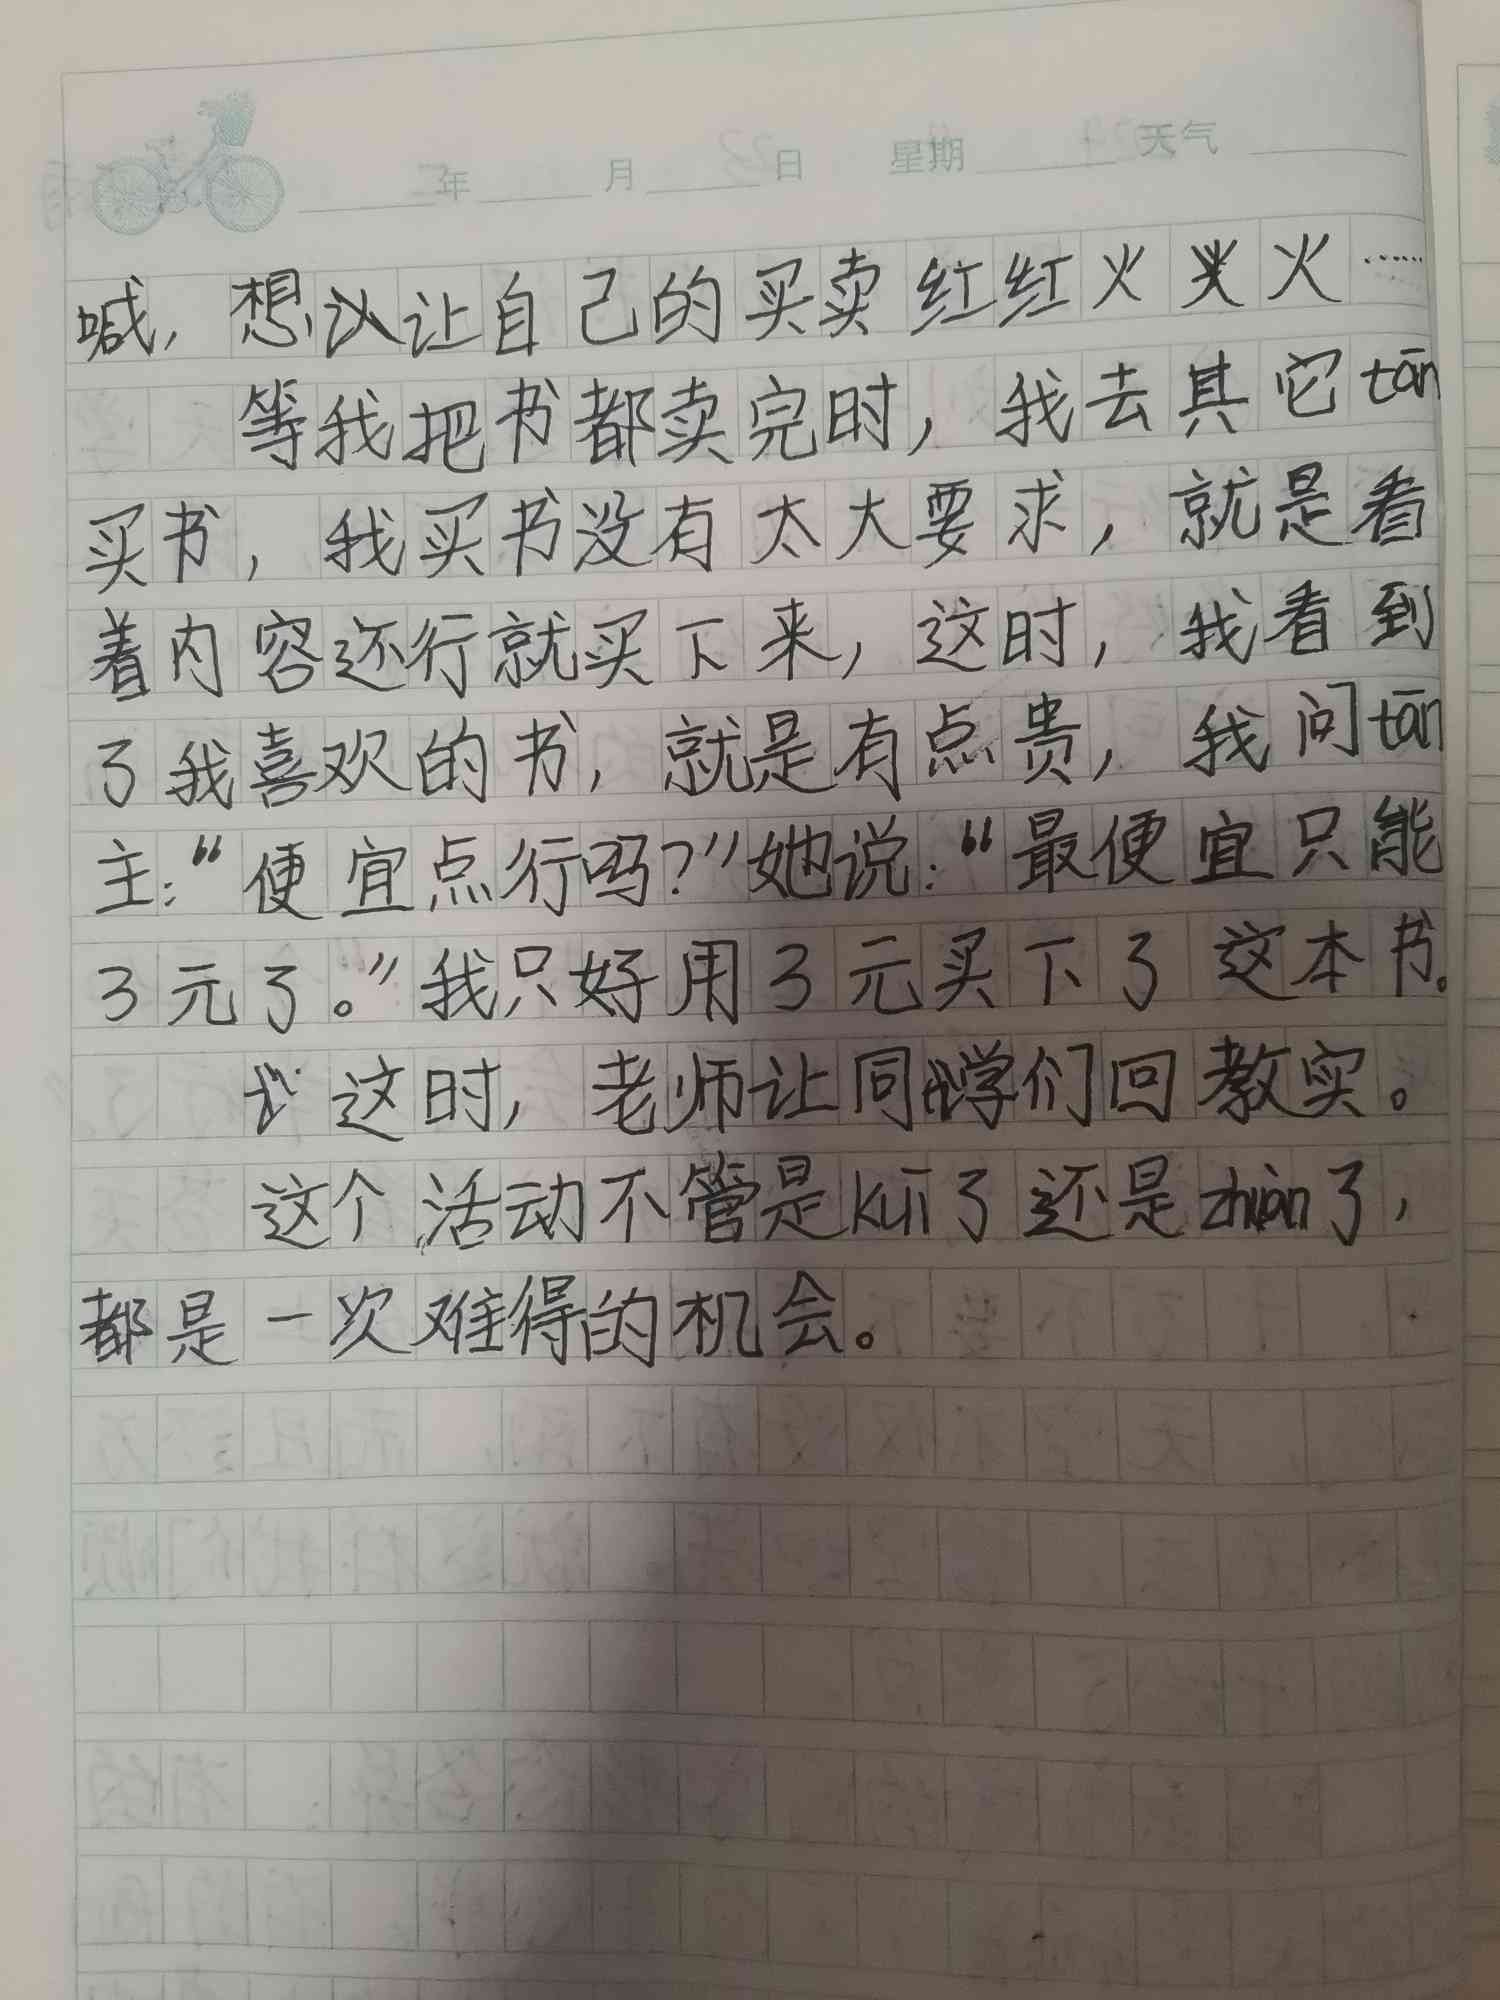 年 月 日 星期 天气
喊，想让自己的买卖红红火火……
等我把书都卖完时，我去其它tān
买书，我买书没有太大要求，就是看
着内容还行就买下来，这时，我看到
了我喜欢的书，就是有点贵，我问tān
主：“便宜点行吗？”她说：“最便宜只能
3元了。”我只好用3元买下了这本书。
这时，老师让同学们回教实。
这个活动不管是kuī了还是zhuàn了，
都是一次难得的机会。